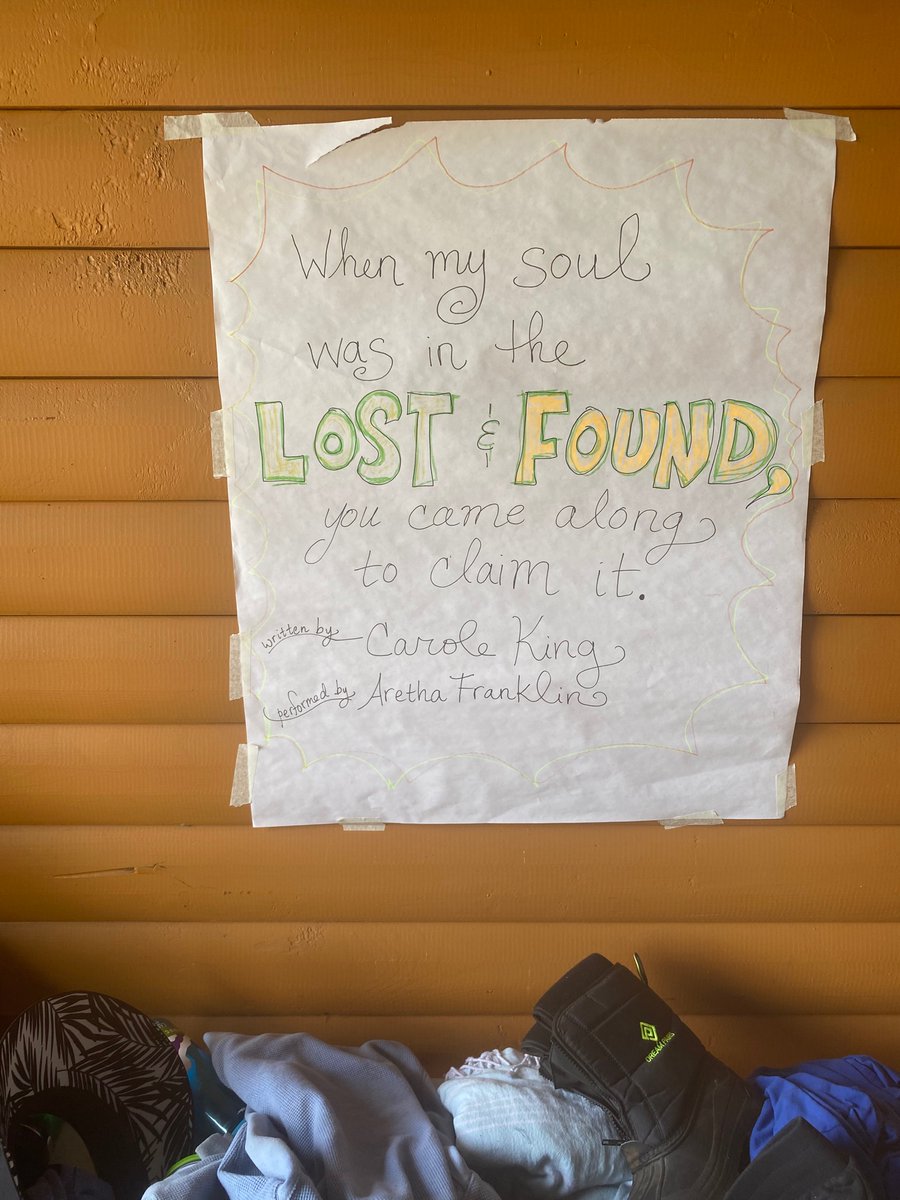 When my soul
was in the
LOST & FOUND,
you came along
to claim it.
written by Carole King
performed by Aretha Franklin
DREAM PAIRS